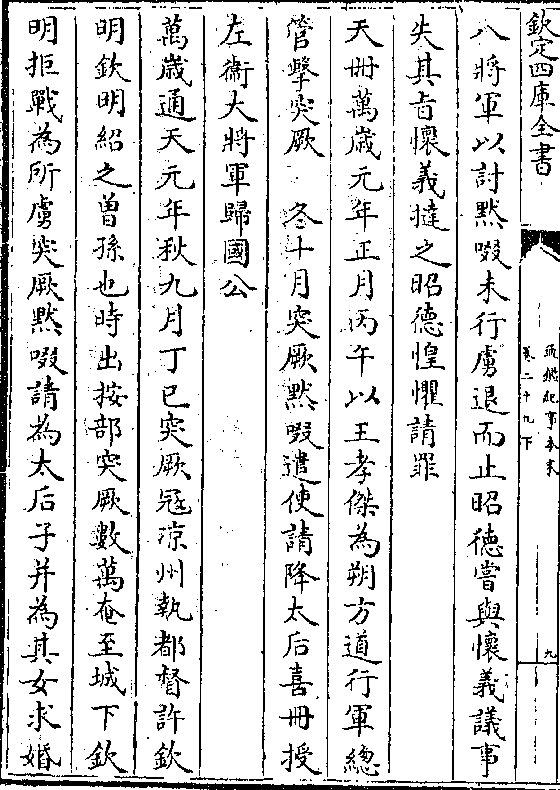 欽定四庫全書
通鑑紀事本末
卷二十九下
九
八將軍以討黙啜未行虜退而止昭德嘗與懷義議事
失其㫖懷義撻之昭德惶懼請罪
天冊萬歲元年正月丙午以王孝傑為朔方道行軍總
管擊突厥 冬十月突厥黙啜遣使請降太后喜冊授
左衞大將軍歸國公
萬歲通天元年秋九月丁巳突厥冦凉州執都督許欽
明欽明紹之曾孫也時出按部突厥數萬奄至城下欽
明拒戰為所虜突厥黙啜請為太后子并為其女求婚